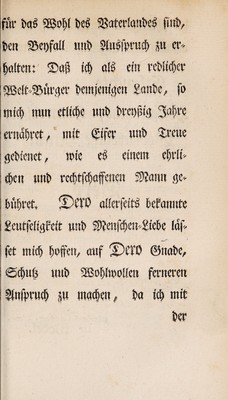 für das Wohl des Vaterlandes sind,
den Beyfall und Ausspruch zu er-
halten: Daß ich als ein redlicher
Welt-Bürger demjenigen Lande, so
mich nun etliche und dreyßig Jahre
ernähret, mit Eifer und Treue
gedienet, wie es einem ehrli-
chen und rechtschaffenen Mann ge-
bühret. Dero allerseits bekannte
Leutseligkeit und Menschen-Liebe läs-
set mich hoffen, auf Dero Gnade,
Schutz und Wohlwollen ferneren
Anspruch zu machen, da ich mit
der